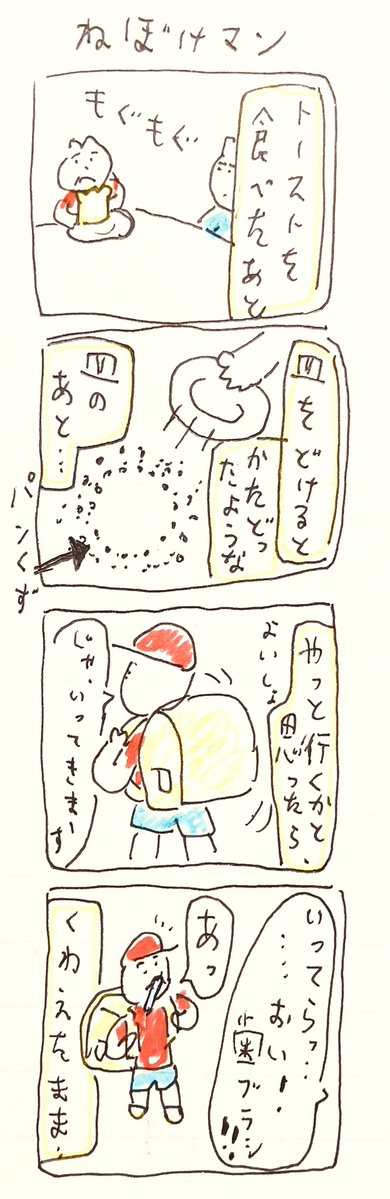 ねぼけマン
トーストを
食べたあと
もぐもぐ
皿をどけると
かたどっ
たような
皿の
あと…
パンくず
やっと行くかと
思ったら、
よいしょ
じゃ、いってきまーす
いってらっ…
……おい！
歯ブラシ!!
あっ
くわえたまま。